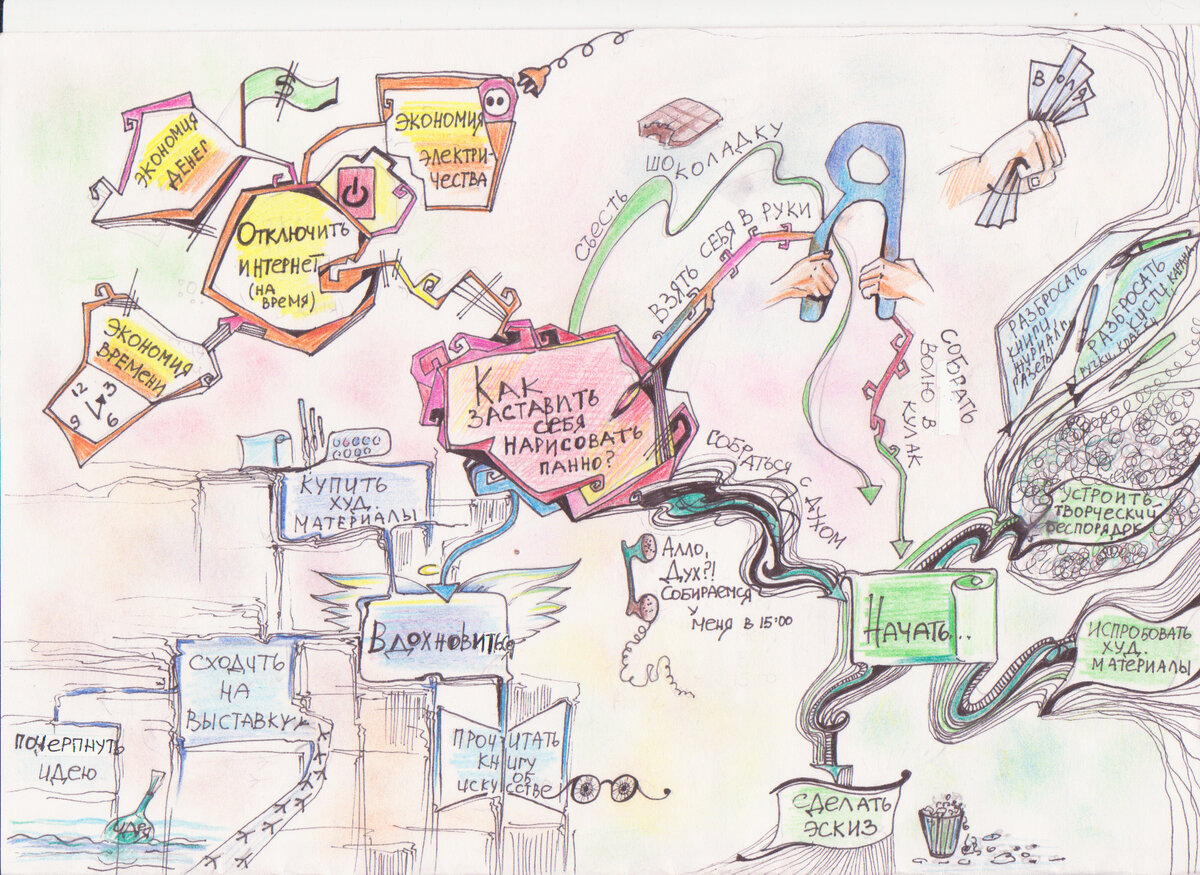 $
ЭКОНОМИЯ
ДЕНЕГ
ЭКОНОМИЯ
ЭЛЕКТРИ-
ЧЕСТВА
ОТКЛЮЧИТЬ
ИНТЕРНЕТ
(НА
ВРЕМЯ)
ЭКОНОМИЯ
ВРЕМЕНИ
12
3
9
6
СЪЕСТЬ ШОКОЛАДКУ
ВЗЯТЬ СЕБЯ В РУКИ
Я
ВОЛЯ
СОБРАТЬ
ВОЛЮ В
КУЛАК
РАЗБРОСАТЬ
КНИГИ
ЖУРНАЛЫ
ГАЗЕТЫ
РАЗБРОСАТЬ
КИСТИ, КАРАНД.
РУЧКИ, КРАСК
КАК
ЗАСТАВИТЬ
СЕБЯ
НАРИСОВАТЬ
ПАННО?
СОБРАТЬСЯ
С ДУХОМ
КУПИТЬ
ХУД.
МАТЕРИАЛЫ
УСТРОИТЬ
ТВОРЧЕСКИЙ
БЕСПОРЯДОК
АЛЛО,
ДУХ?!
СОБИРАЕМСЯ
У
МЕНЯ В 15:00
ВДОХНОВИТЬС
НАЧАТЬ...
ИСПРОБОВАТЬ
ХУД.
МАТЕРИАЛЫ
СХОДИТЬ
НА
ВЫСТАВКУ
ПОЧЕРПНУТЬ
ИДЕЮ
ИДЕЯ
ПРОЧИТАТЬ
КНИГУ
ОБ
ИСКУССТВЕ
СДЕЛАТЬ
ЭСКИЗ